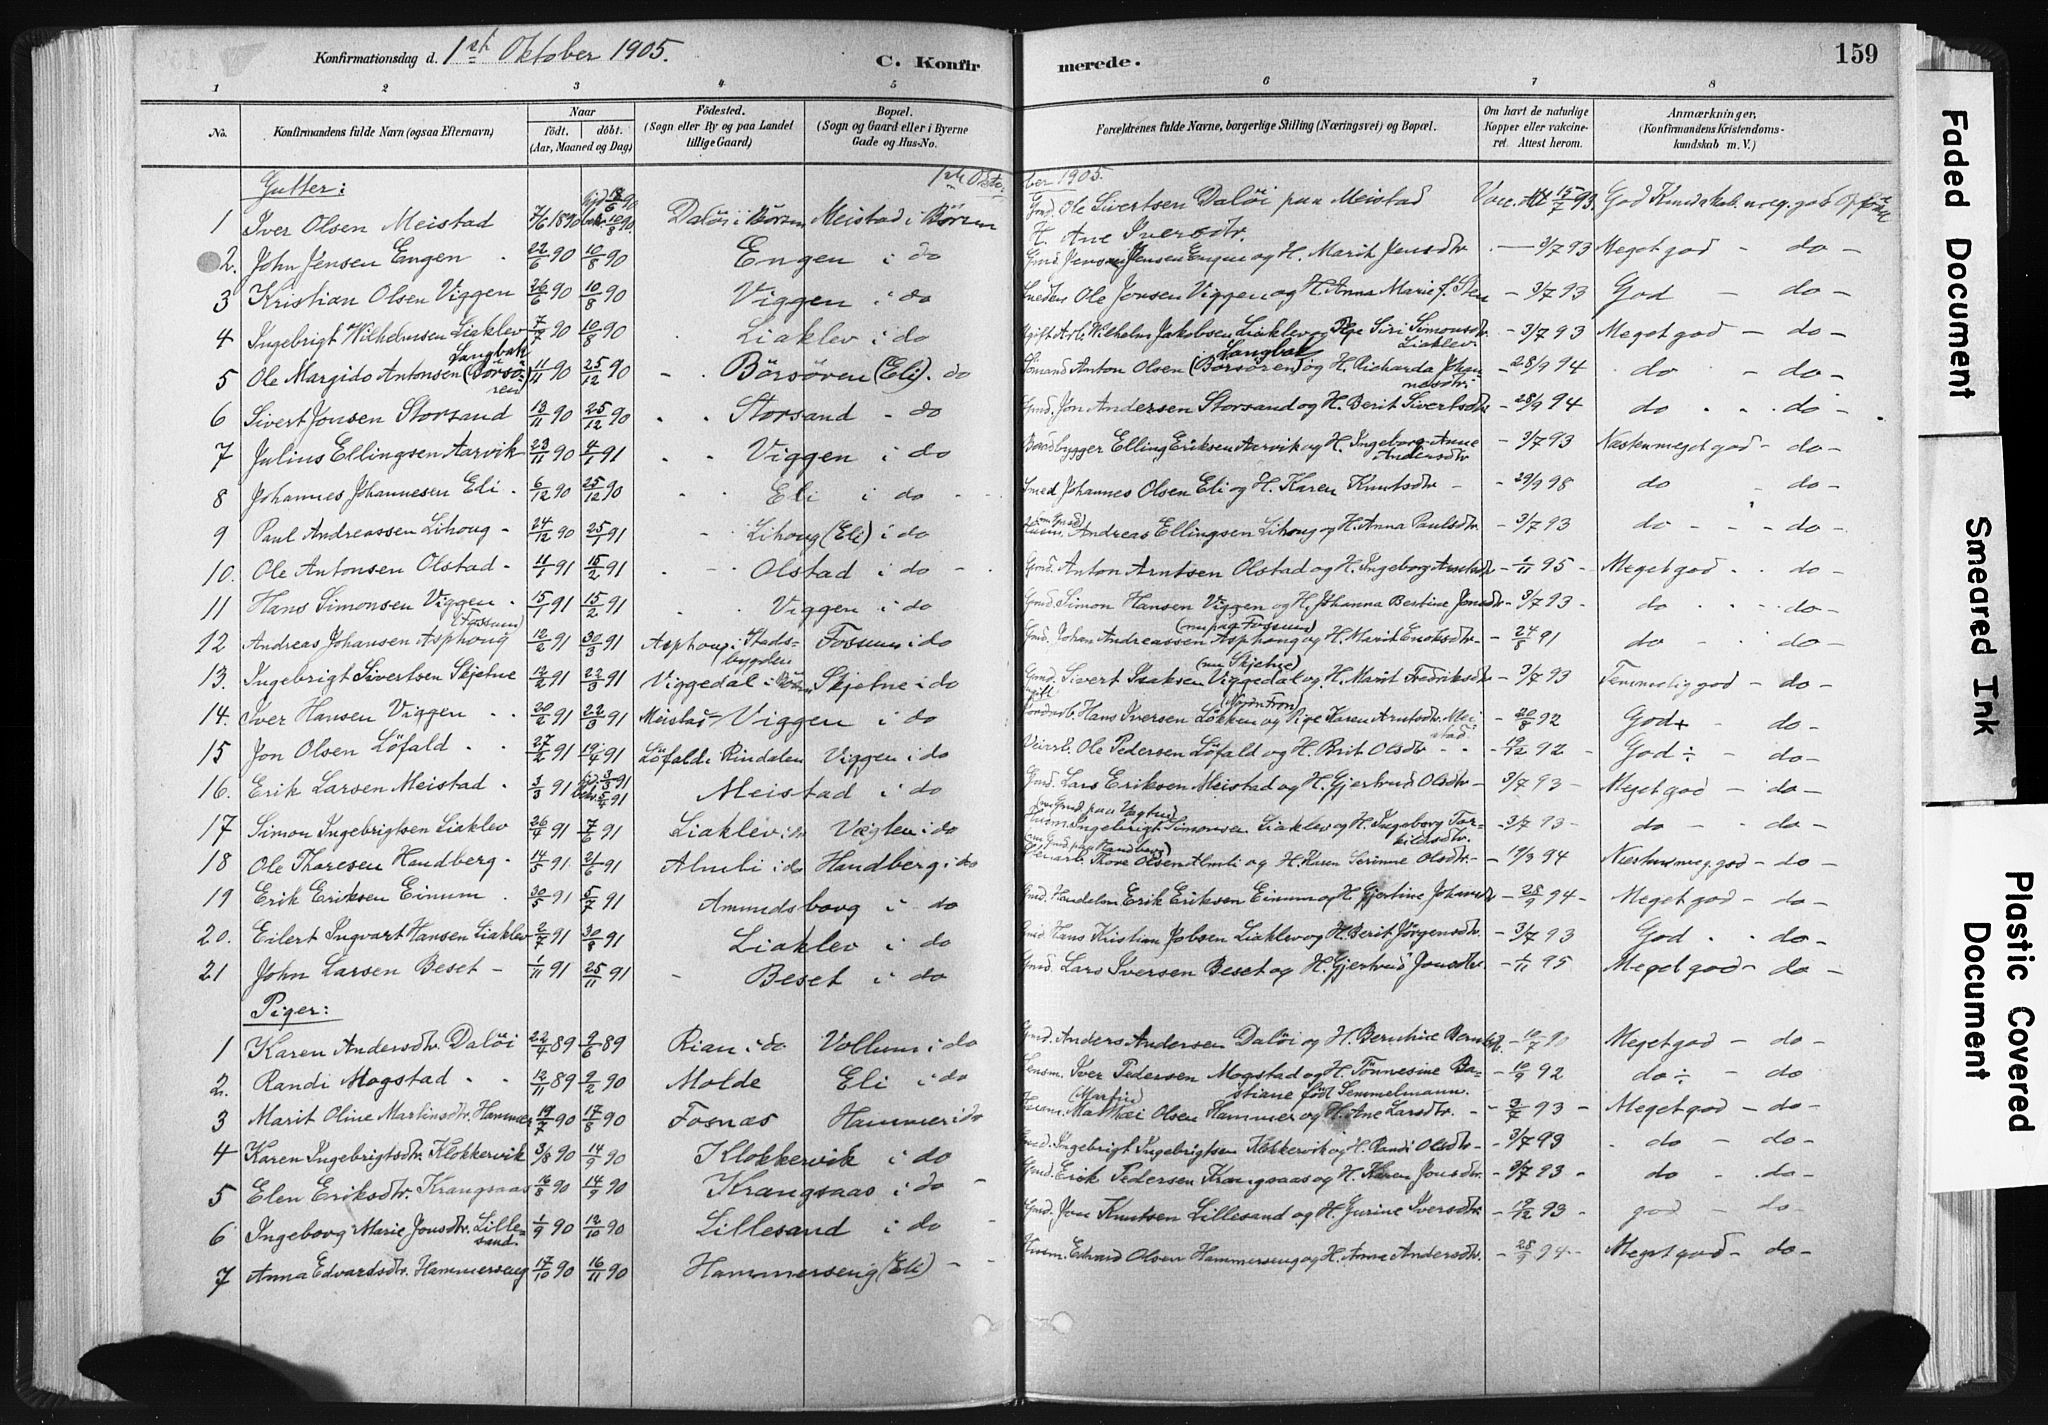 Konfirmationsdag d. 1st Oktober 1905.
C. Konfirmerede.
159
1 2 3 4 5 6 7 8
No. Konfirmandens fulde Navn (ogsaa Efternavn) Naar født. døbt. (Aar, Maaned og Dag) Fødested. (Sogn eller By og paa Landet tillige Gaard) Bopæl. (Sogn og Gaard eller i Byerne Gade og Hus-No. Forældrenes fulde Navne, borgerlige Stilling (Næringsvei) og Bopæl. Om havt de naturlige Kopper eller vaccineret. Attest herom. Anmærkninger. (Konfirmandens Kristendomskundskab m. V.)
Gutter:
1 Iver Olsen Meistad 7/6 1890 10/8 90. Daløi i Børsen Meistad i Børsen Gmd. Ole Sivertsen Daløi paa Meistad H. Ane Iversdtr. Vacc. 15/7 93. God Kundskab
2. John Jensen Engen 22/6 90 10/8 90 Engen i do Gmd. Jens Jensen Engen og H. Marit Jensdtr. 3/7 93 Meget god - do -
3 Kristian Olsen Viggen 26/6 90 10/8 90 Viggen i do Ole Jonsen Viggen og H. Anna Marie f. Sten - 3/7 93 God - do -
4 Ingebrigt Wilhelmsen Liaklev 7/7 90 10/8 90 Liaklev i do Ugift Arb. Wilhelm Jakobsen Liaklev og Pige Siri Simonsdtr. Liaklev - 3/7 93 Meget god - do -
5 Ole Margido Antonsen (Børsøren) Langbak 1/11 90 25/12 90 Børsøren (Eli). do Anton Olsen (Børsøren) Langbak og H. Richarda Johannesdtr. - 28/9 94 do - do -
6 Sivert Jonsen Storsand 13/11 90 25/12 90 Storsand - do Gmd. Jon Andersen Storsand og H. Berit Sivertsdtr - 28/9 94 do do -
7 Julius Ellingsen Aarvik 23/11 90 4/1 91 Viggen i do Baadbygger Elling Eriksen Aarvik og H. Ingeborg Anne Andersdtr - 3/7 93 Næsten meget god - do -
8 Johannes Johannesen Eli - 6/12 90 25/12 90 Eli i do Smed Johannes Olsen Eli og H. Karen Knutsdtr - 29/9 98 do - do -
9 Paul Andreassen Lihoug - 24/12 90 25/1 91 Lihoug (Eli) i do Andreas Ellingsen Lihoug og H. Anna Paulsdtr - 3/7 93 do - do -
10. Ole Antonsen Olstad - 11/1 91 15/2 91 Olstad i do Gmd. Anton Arntsen Olstad og H. Ingeborg Arntsdtr - 1/11 95 Meget god - do -
11 Hans Simonsen Viggen 15/1 91 15/2 91 Viggen i do Gmd. Simon Hansen Viggen og H. Johanna Bertine Jonsdtr - 3/7 93 do - do -
12 Andreas Johansen Asphoug (Fossum) 12/2 91 30/3 91 Asphoug i Stadsbygden Fossum i do Gmd. Johan Andreassen Asphoug (nu paa Fossum) og H. Marit Enoksdtr - 24/8 91 do - do -
13. Ingebrigt Sivertsen Skjetne 12/2 91 22/3 91 Viggedal i Børsen Skjetne i do Gmd. Sivert Isaksen Viggedal (nu Skjetne) og H. Marit Fredriksdtr - 3/7 93 Temmelig god - do -
14. Iver Hansen Viggen 20/2 91 22/3 91 Meistad Viggen i do Hans Iversen Løkken (Nordre Fron) og Pige Karen Arntsdtr. Meistad - 20/8 92 God + do -
15 Jon Olsen Løfald 27/2 91 19/4 91 Løfald i Rindalen Viggen i do Veiarb. Ole Pedersen Løfald og H. Brit Olsdtr - 19/12 92 - God ÷ do -
16. Erik Larsen Meistad 3/3 91 3/3 91 5/4 91 Meistad i do Gmd. Lars Eriksen Meistad og H. Gjertrud Olsdtr - 3/7 93 - Meget god - do -
17 Simon Ingebrigtsen Liaklev 26/4 91 7/6 91 Liaklev i do Vægten i do Ingebrigt Simonsen Liaklev og H. Ingeborg Torkildsdtr. - 3/7 93 - do - do -
18 Ole Thoresen Handberg - 14/5 91 21/6 91 Almli i do Handberg i do Thore Olsen Almli og H. Karen Serinne Olsdtr. - 19/3 94 Næsten meg. god - do -
19 Erik Eriksen Einum 30/5 91 5/7 91 Amundsborg i do Gmd. Handelsm Erik Eriksen Einum og H Gjertine Johansdtr - 28/9 94 - Meget god - do -
20. Eilert Ingvart Hansen Liaklev 2/7 91 30/8 91 Liaklev i do Gmd Hans Kristian Jobsen Liaklev og H. Berit Jørgensdtr. - 3/7 93 God do -
21 John Larsen Beset - 1/11 91 25/11 91 - Beset i do Gmd. Lars Iversen Beset og H. Gjertrud Jonsdtr. - 1/11 95 Meget god - do -
Piger:
1 Karen Andersdtr. Daløi 22/4 89 9/6 89 Rian i do Vollum i do Gmd. Anders Andersen Daløi og H. Bernhine - 19/7 90 Meget god - do -
2. Randi Mogstad 12/11 89 9/2 90 Molde Eli i do Lensm. Iver Pedersen Mogstad og H. Tønnesine Bastiane født Semmelmann. - 10/9 92 do ÷ - do
3 Marit Oline Martinsdtr. Hammer 19/7 90 17/8 90 Fosnæs Hammer i do (Martin) Olsen Hammer og H. Ane Larsdtr. - 3/7 93 - Meget god - do -
4 Karen Ingebrigtsdtr. Klokkervik 3/8 90 14/9 90 Klokkervik i do Gmd. Ingebrigt Ingebrigtsen Klokkervik og H. Randi Olsdtr - 3/7 93 do - do -
5 Elen Eriksdtr. Krangsaas 16/8 90 14/9 90 Krangsaas i do - Gmd. Erik Pedersen Krangsaas og H. Karen Jonsdtr. - 3/7 93 - do - do -
6 Ingeborg Marie Jonsdtr. Lillesand 1/9 90 12/10 90 Lillesand i do Gmd. Jon Knutsen Lillesand og H. Gurine Iversdtr - 19/12 93 - god - do -
7 Anna Edvardsdtr. Hammerseng 17/10 90 16/11 90 Hammerseng (Eli) - Husm. Edvard Olsen Hammerseng og H. Anne Andersdtr. - 28/9 94 - Meget god - do -
Faded Document
Smeared Ink
Plastic Covered Document